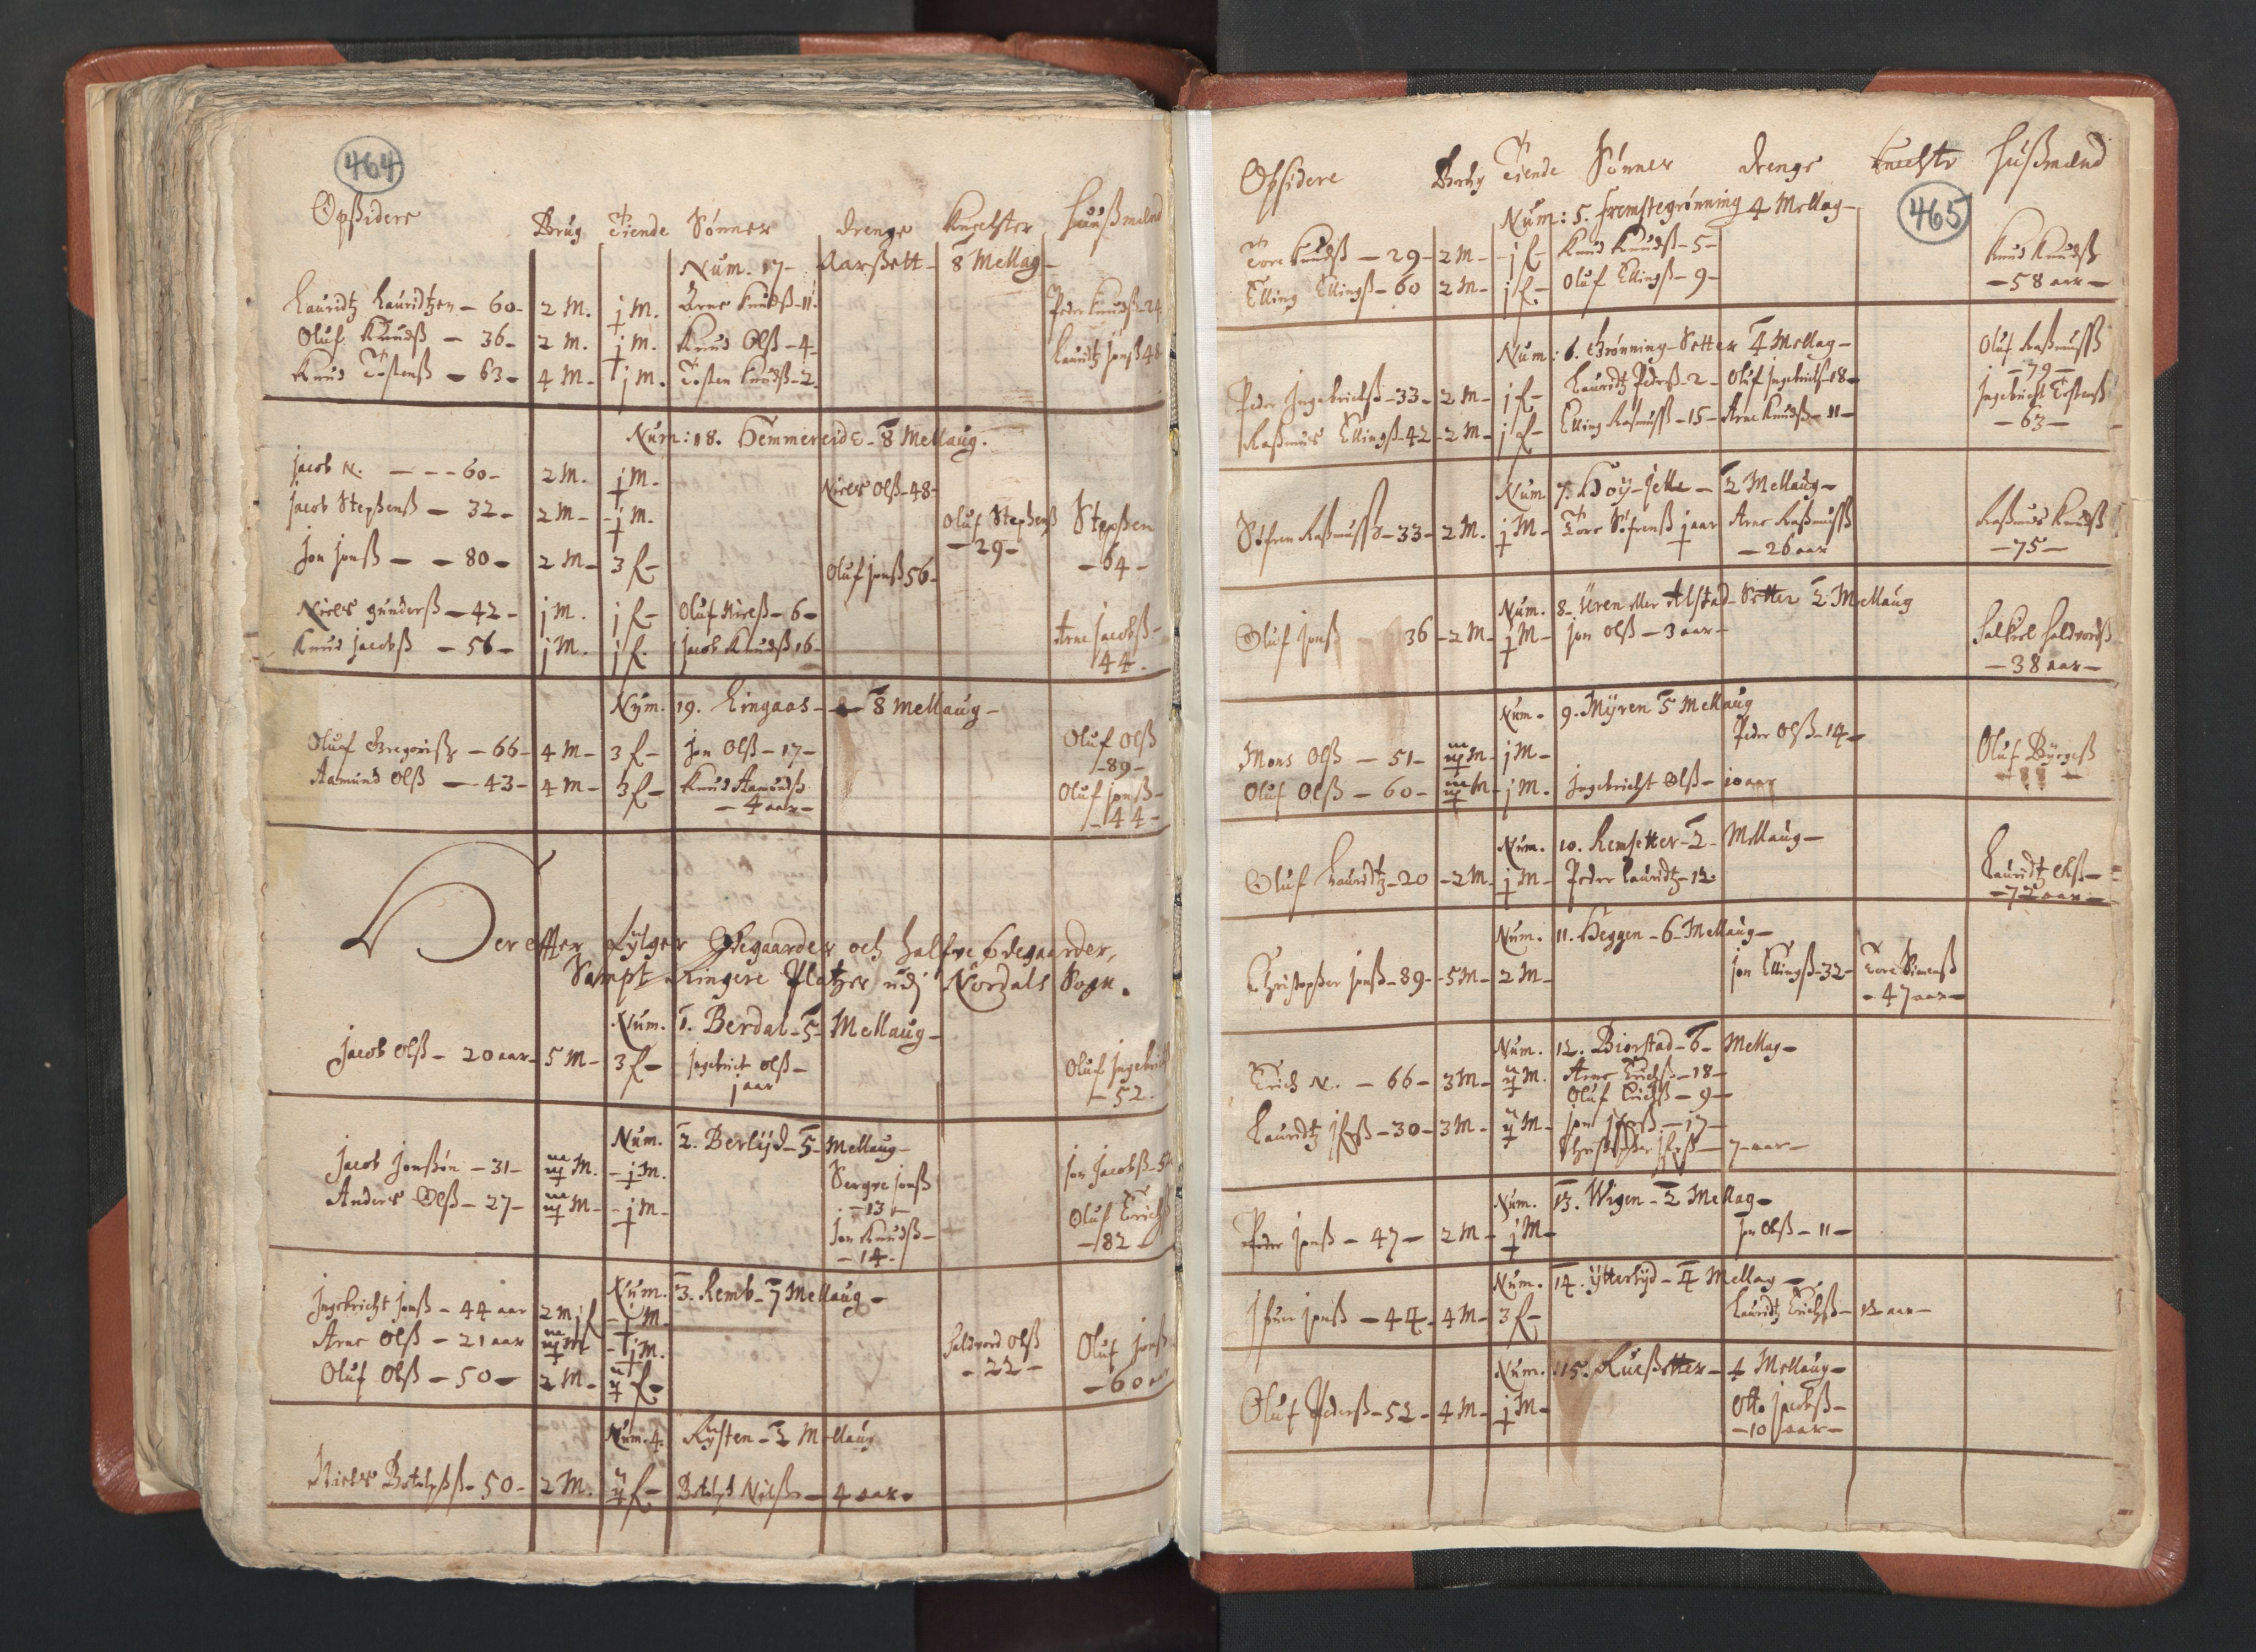 464
Opsiders Brug Tiende Sønner drenge Knechter Huußmænd
Num. 17 - Aarßett - 8 Mellag -
Lauridtz Lauridtzen - 60 - 2 M. j M. Arne Knudß - 11. Peder Knudß - 24
Oluf Knudß - 36 - 2 M. j M. Knud Olß - 4 - Lauridtz Jonß 48
Knud Tostenß - 63 - 4 M - j M. Tosten Knudß - 2.
Num: 18. Hemmereide - 8 Mellaug.
Jacob N. - - - 60 - 2 M. j M. Niels Olß - 48 -
Jacob Stephenß - 32 - 2 M - j M. Oluf Stephenß - 29 - Stephen - 64 -
Jon Jonß - - 80 - 2 M - 3 f - Oluf Jonß 56 -
Niels gunderß - 42 - j M. j f - Oluf Nielß - 6 -
Knud Jacobß - 56 - j M. j f. Jacob Knudß 16 - Arne Jacobß - 44.
Num. 19. Lingaas - 8 Mellaug -
Oluf Gregorisß - 66 - 4 M - 3 f - Jon Olß - 17 - Oluf Olß - 89 -
Aamund Olß - 43 - 4 M - 3 f - Knud Aamundß - 4 aar - Oluf Jonß - 44 -
Der effter fylger Ødegaarder och halfve ödegaarder,
Sampt Ringere Platzer udj Nordals Sogn.
Num. 1. Berdal - 5 - Mellaug -
Jacob Olß - 20 aar - 5 M - 3 f - Ingebrict Olß - j aar Oluf Ingebrich - 52.
Num. 2. Berlijd - 5 - Mellaug -
Jacob Jonßøn - 31 - iij M. - j M. Sergve Jonß - 13 - Jon Jacobß - 5
Anders Olß - 27 - iij M - - j M - Jon Knudß - 14 - Oluf Erichß - 82 -
Num. 3. Remb - 7 Mellaug -
Ingebricht Jonß - 44 aar 2 M j f - j M -
Arne Olß - 21 aar iij M - j M. Haldvord Olß - 22 - Oluf Jonß - 60 aar
Oluf Olß - 50 - 2 M - ij f -
Num. 4. Rysten - 2 Mellaug
Niels Botolphß - 50 - 2 M. ij f - Botolph Nilß - 4 aar -
465
Opsidere Brug Tiende Sønner drenge Knechte Hußmænd
Num: 5. fremstegrønning 4 Mellag -
Tore Knudß - 29 - 2 M - - j f - Knud Knudß - 5 - Knud Knudß - 58 aar -
Elling Ellingß - 60 2 M - j f - Oluf Ellingß - 9 -
Num: 6. Grønning-Setter 4 Mellag -
Peder Ingebrichtß - 33 - 2 M - j f - Lauridtz Pederß - 2 - Oluf Ingebrichtß - 18 - Oluf Rasmusß - 79 -
Rasmus Ellingß - 42 - 2 M - j f - Elling Rasmusß - 15 - Arne Knudß - 11 - Ingebricht Tostenß - 63 -
Num 7. Høy-Jelle - 2 Mellaug -
Søfren Rasmusß - 33 - 2 M. j M - Tore Søfrenß j aar Arne Rasmusß - 26 aar Rasmus Knudß - 75 -
Num. 8. Uren eller Alstad-Setter 2 Mellaug
Oluf Jonß 36 - 2 M - j M - Jon Olß - 3 aar - Halkiel Haldvordß - 38 aar -
Num. 9. Myren 5 Mellaug
Mons Olß - 51 - iij M - j M - Peder Olß - 14 - Oluf Byrgeß
Oluf Olß - 60 - iij M - j M. Ingebricht Olß - 10 aar
Num. 10. Remsetter - 2 - Mellaug -
Oluf Lauridtz - 20 - 2 M - j M - Peder Lauridtz - 12 Lauridtz Olß - 72 aar -
Num. 11. Heggen - 6 - Mellaug -
Christopher Jonß - 89 - 5 M - 2 M - Jon Ellingß - 32 - Tore Simenß - 47 aar -
Num. 12. Biørstad - 6 - Mellag -
Erich N. - 66 - 3 M - ij M. Arne Erichß - 18 -
Oluf Erichß - 9 -
Lauridtz Ifverß - 30 - 3 M - ij M - Jon Ifverß - 17 -
Christopher Ifverß - 7 aar -
Num. 13. Wigen - 2 Mellag -
Peder Jonß - 47 - 2 M - j M - Jon Olß - 11 -
Num. 14. Ytterlijd - 4 Mellag -
Ifver Jonß - 44 - 4 M - 3 f - Lauridtz Erichß - 12 aar -
Num. 15. Rueßetter - 4 Mellaug -
Oluf Pederß - 52 - 4 M - j M - Otto Jacobß - 10 aar -